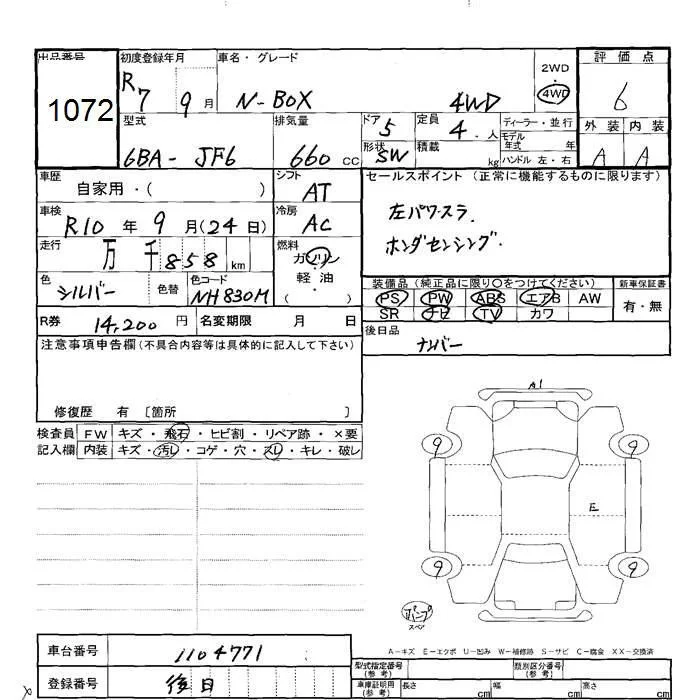 出品番号 初度登録年月 車名・グレード 2WD・4WD 評価点
1072 R7 9月 N-BOX 4WD 6
型式 排気量 ドア 5 定員 4.人 ディーラー・並行 外装 内装
6BA- JF6 660cc 形状 SW 積載 kg モデル年式 年 A A
ハンドル 左・右
車歴 自家用・( ) シフト AT セールスポイント(正常に機能するものに限ります)
車検 R10年 9月(24日) 冷房 AC 左パワスラ.
走行 万 千 858 km 燃料 ガソリン・軽油・( ) ホンダセンシング.
色 シルバー 色替 色コード NH830M 装備品(純正品に限り○をつけてください) 新車保証書
PS PW ABS エアB AW 有・無
R券 14,200円 名変期限 月 日 SR ナビ TV カワ
注意事項申告欄(不具合内容等は具体的に記入して下さい) 後日品
ナンバー
修復歴 有 [箇所 ]
A1
検査員 FW キズ・飛石・ヒビ割・リペア跡・×要
記入欄 内装 キズ・汚れ・コゲ・穴・スレ・キレ・破レ
9 9
E
9 9
パンク
スペア
A-キズ E-エクボ U-凹み W-補修跡 S-サビ C-腐食 XX-交換済
車台番号 1104771 型式指定番号(参考) 類別区分番号(参考)
登録番号 後日 車庫証明用(参考) 長さ cm 幅 cm 高さ cm